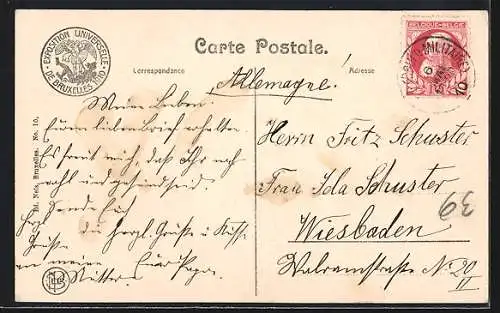 EXPOSITION UNIVERSELLE
DE BRUXELLES 1910
Carte Postale.
Correspondance
Adresse
Allemagne!
BELGIQUE·BELGIE
Meine Lieben.
Euren lieben Brief erhalten.
Es freut mich, daß Ihr noch
wohl und gesund seid.
Sende Euch
herzl. Grüße u. Küsse
Grüße
an meine
Euer Papa.
Herrn Fritz Schuster
Frau Ida Schuster
Wiesbaden
Walramstraße No. 20
II
39
Ed. Nels, Bruxelles. No. 10.